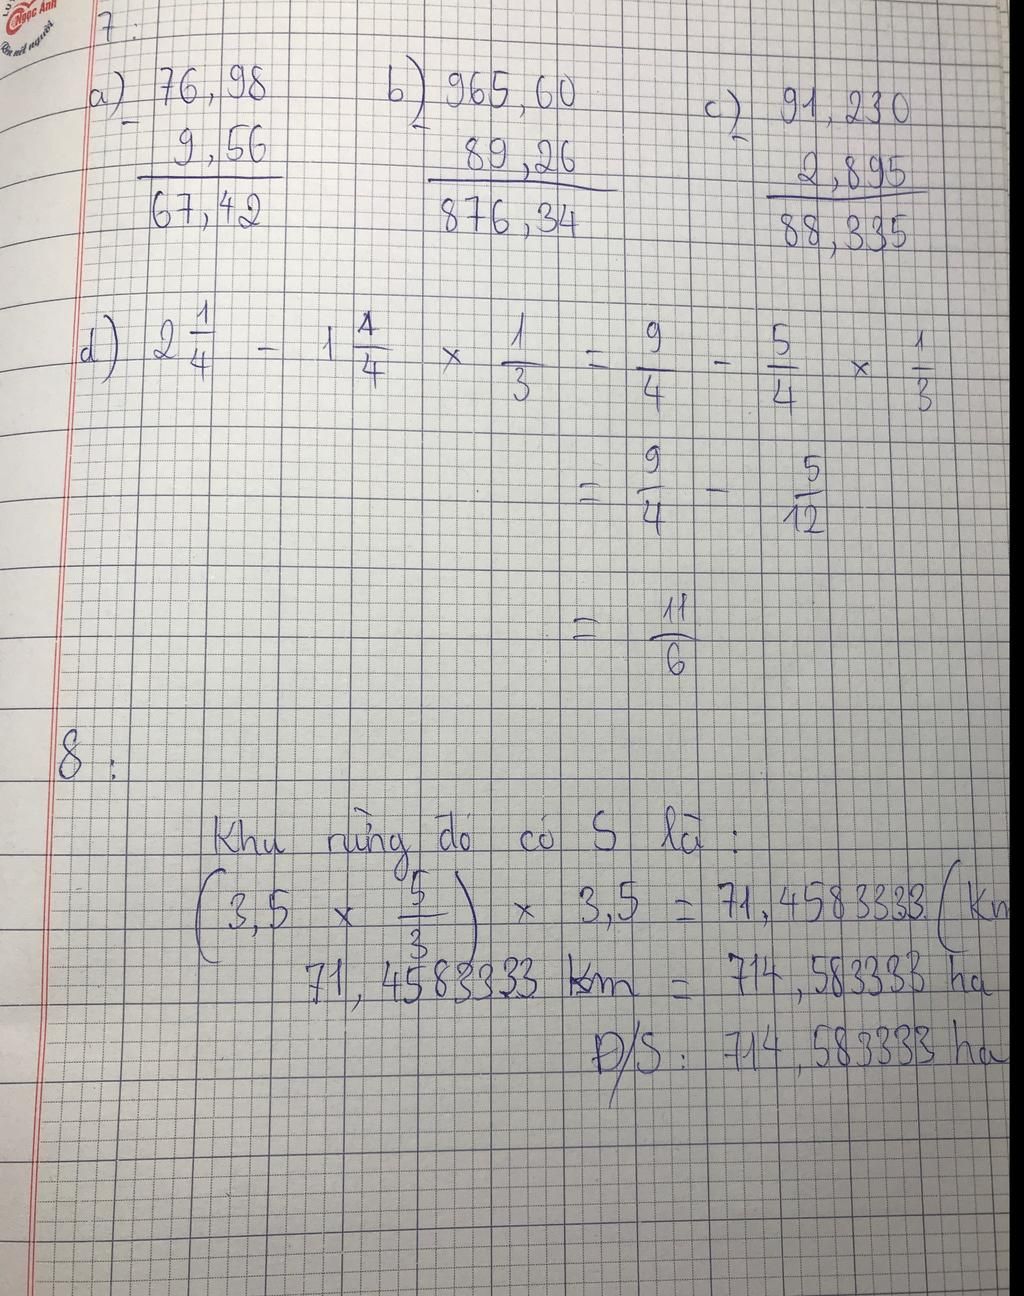 Ngọc Ánh
7:
a) 76,98 b) 965,60 c) 91,230
- 9,56 - 89,26 - 2,895
67,42 876,34 88,335
d) 2 1/4 - 1 1/4 × 1/3 = 9/4 - 5/4 × 1/3
= 9/4 - 5/12
= 11/6
8:
Khu rừng đó có S là:
(3,5 × 5/3) × 3,5 = 71,4583333 (Km
71,4583333 Km = 714,583333 ha
Đ/S: 714,583333 ha